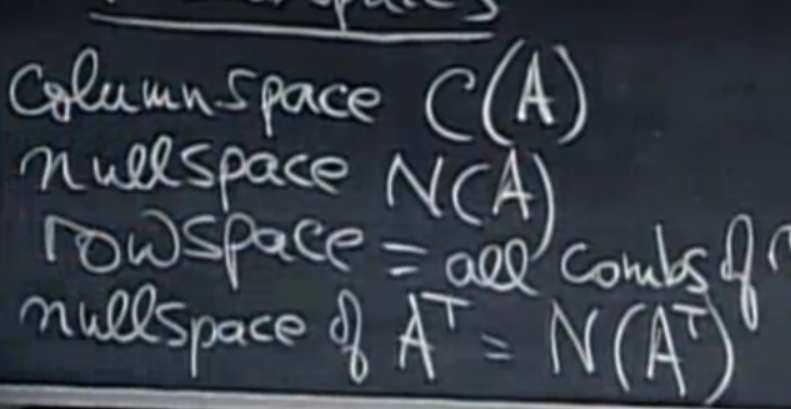 columnspace C(A)
nullspace N(A)
rowspace = all combs of
nullspace of Aᵀ = N(Aᵀ)